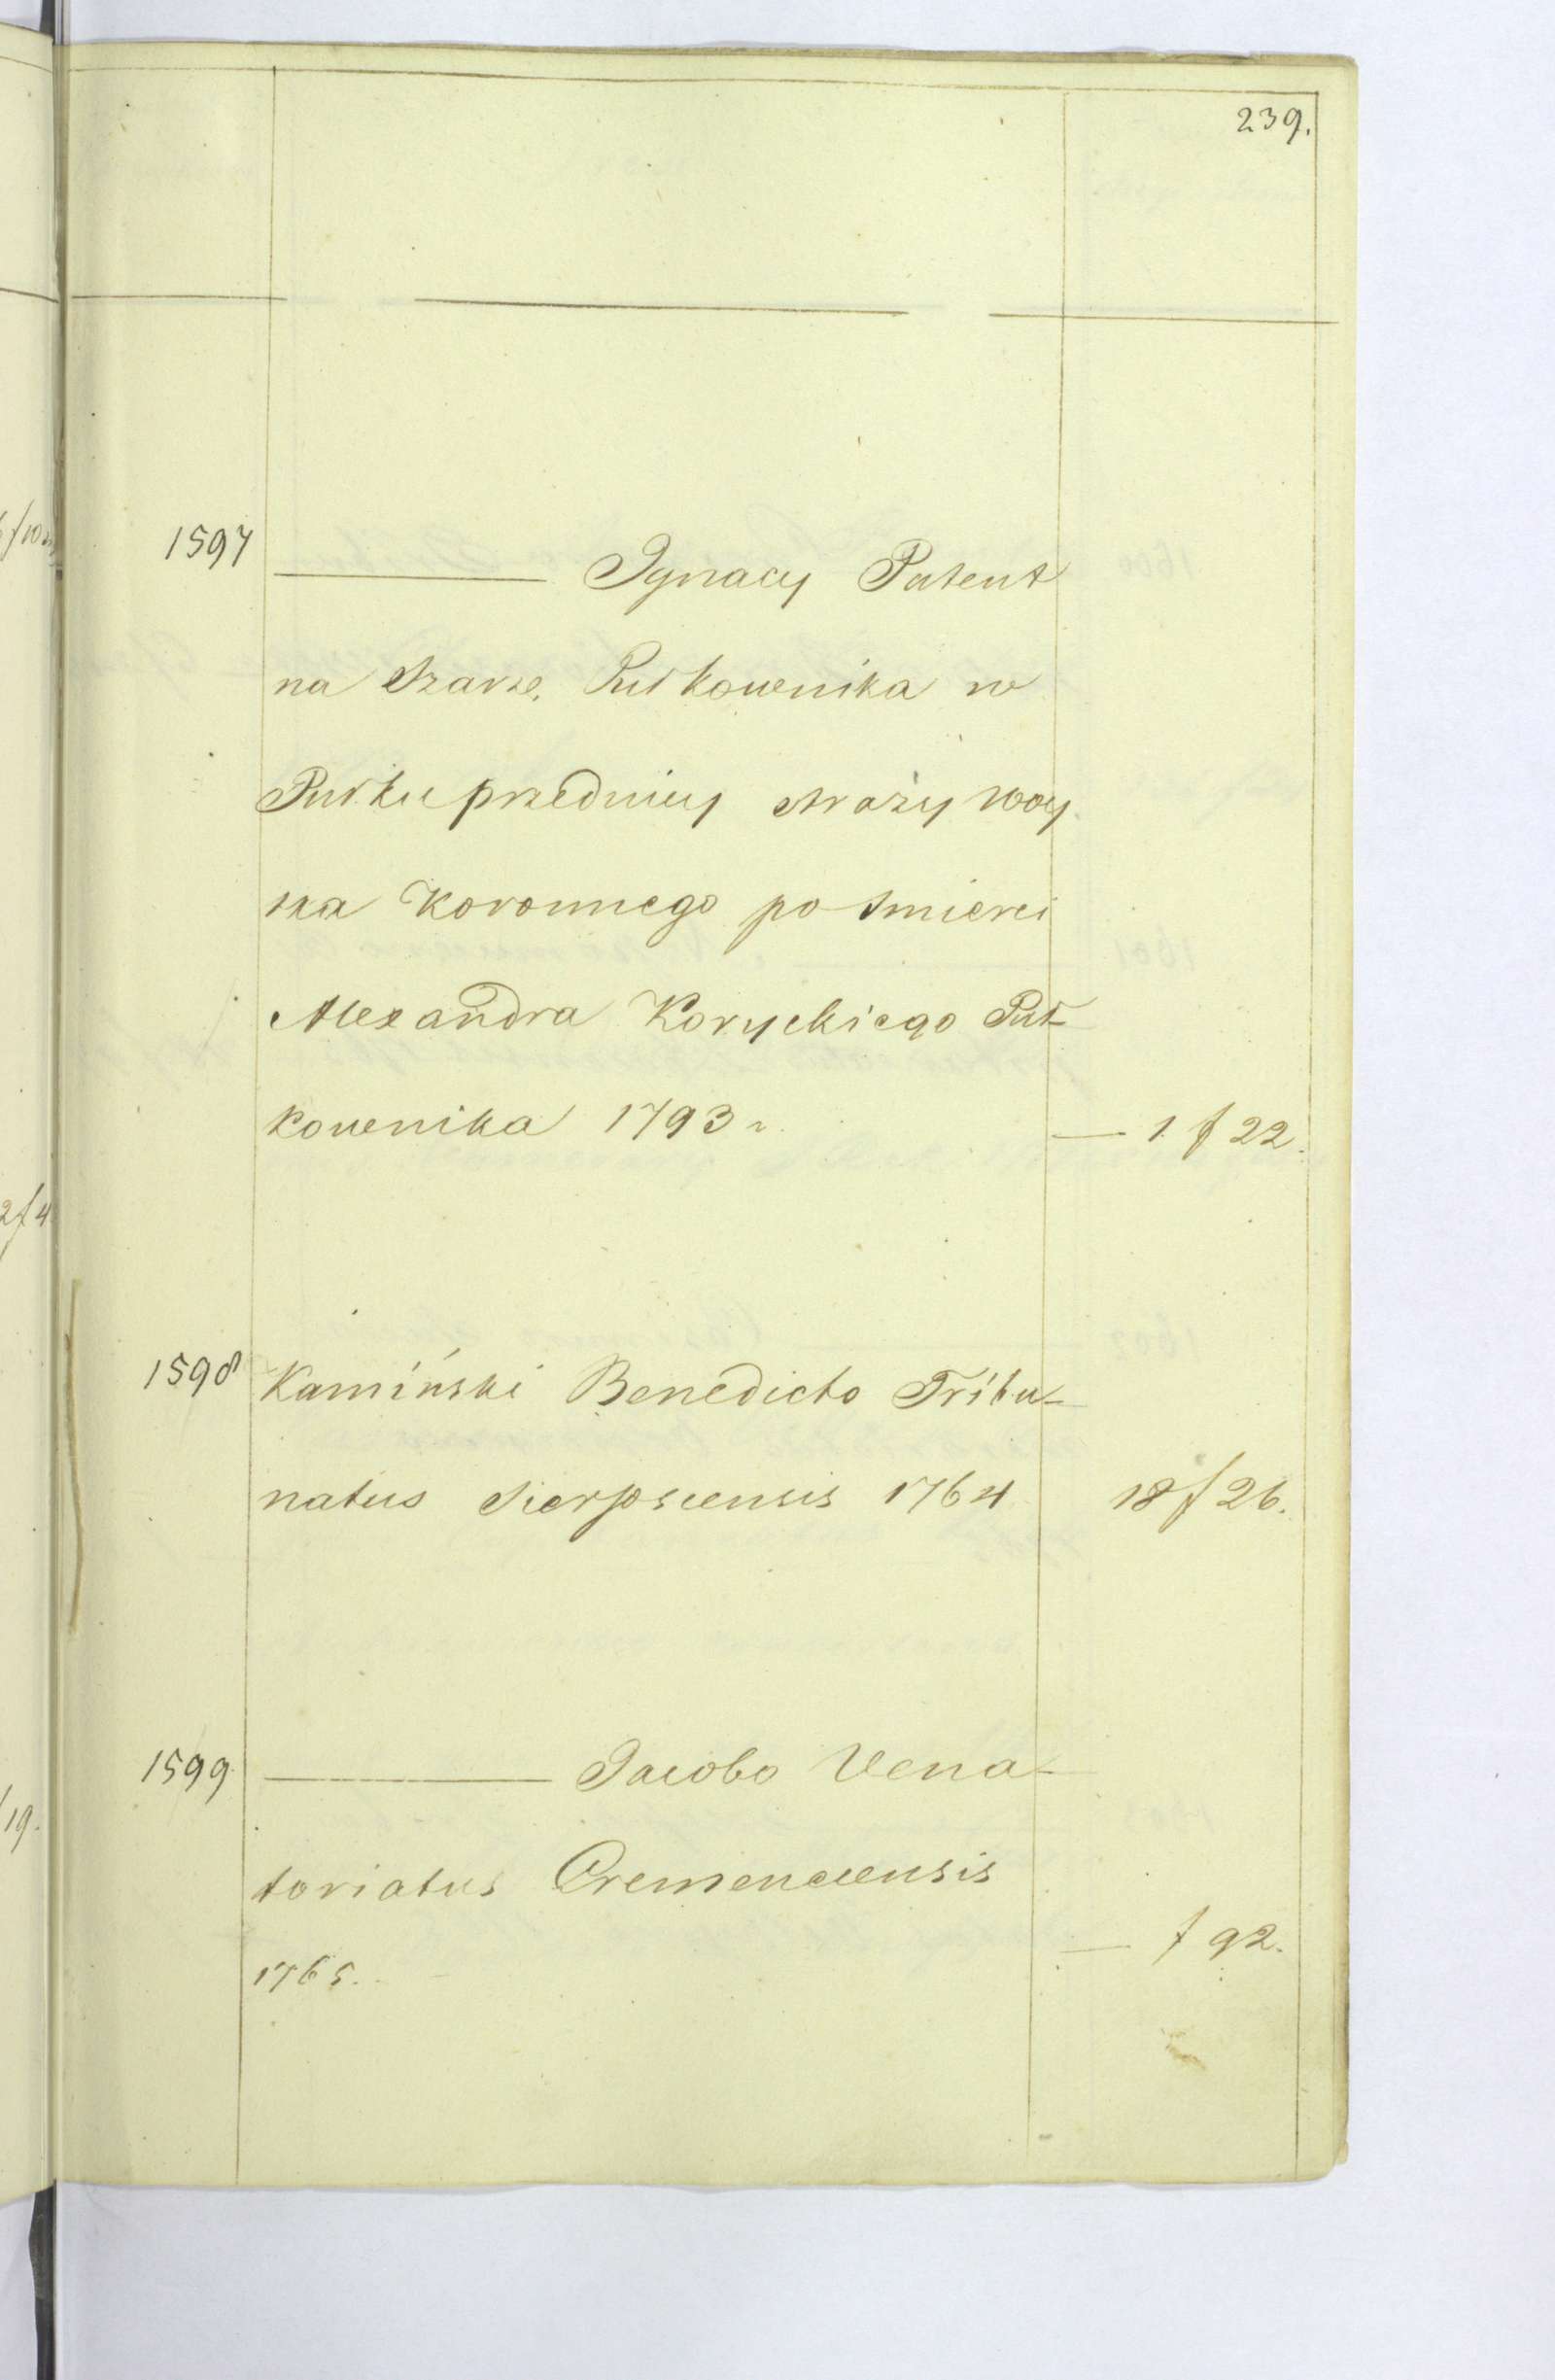 239.
1597 ——— Ignacy Patent
na Szarżę Pułkownika w
Pułku przedniey straży woy
ska Koronnego po śmierci
Alexandra Koryckiego Puł-
kownika 1793 r. — 1 f 22.
1598 Kamiński Benedicto Tribu-
natus Sierpscensis 1764 18 f 26.
1599 ——— Jacobo Vena-
toriatus Cremenecensis
1765. — f 92.